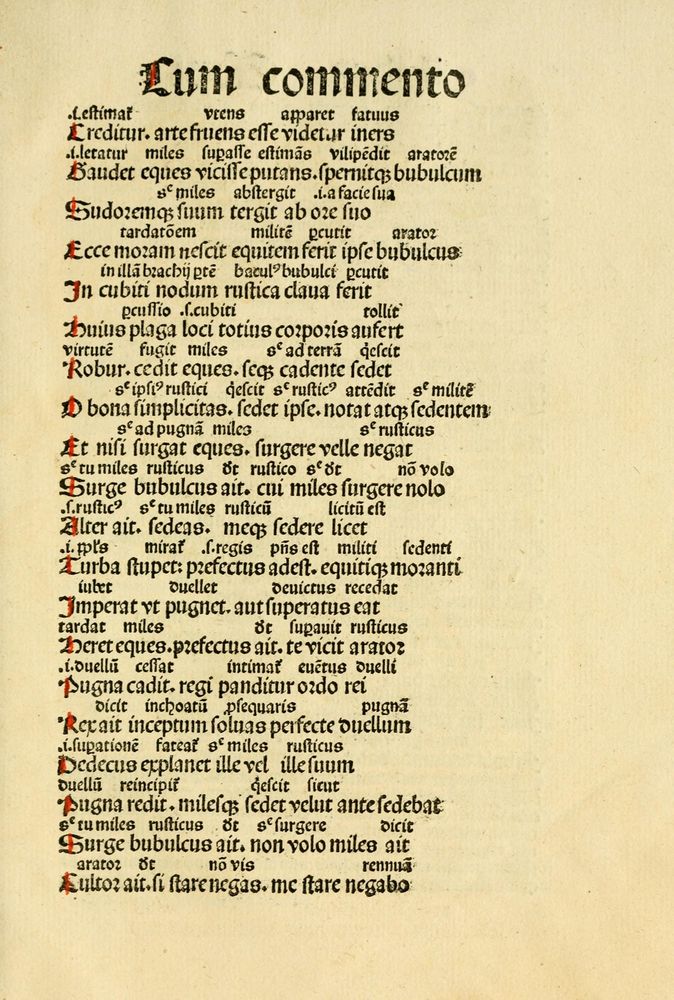 Cum commento
.i. estimat᷑ vtens apparet fatuus
Creditur. arte fruens esse videtur iners
.i. letatur miles suꝑasse estimãs vilipẽdit aratorẽ
Gaudet eques vicisse putans. spernitqꝫ bubulcum
sᶜ miles abstergit .i. a facie sua
Sudoremqꝫ suum tergit ab ore suo
tardatõem militẽ ꝑcutit arator
Ecce moram nescit equitem ferit ipse bubulcus
in illã brachij ꝑtẽ bacul⁹ bubulci ꝑcutit
In cubiti nodum rustica claua ferit
ꝑcussio .s. cubiti tollit
Huius plaga loci totius corporis aufert
virtutẽ fugit miles sᶜ ad terrã q̇escit
Robur. cedit eques. seqꝫ cadente sedet
sᶜ ipsi⁹ rustici q̇escit sᶜ rustic⁹ attẽdit sᶜ militẽ
O bona simplicitas. sedet ipse. notat atqꝫ sedentem
sᶜ ad pugnã miles sᶜ rusticus
Et nisi surgat eques. surgere velle negat
sᶜ tu miles rusticus d̃t rustico sᶜ d̃t nõ volo
Surge bubulcus ait. cui miles surgere nolo
.s. rustic⁹ sᶜ tu miles rusticũ licitũ est
Alter ait. sedeas. meqꝫ sedere licet
.i. ppl̃s mirat᷑ .s. regis pñs est militi sedenti
Turba stupet: prefectus adest. equitiqꝫ moranti
iubet duellet deuictus recedat
Imperat vt pugnet. aut superatus eat
tardat miles d̃t suꝑauit rusticus
Heret eques. prefectus ait. te vicit arator
.i. duellũ cessat intimat᷑ euẽtus duelli
Pugna cadit. regi panditur ordo rei
dicit inchoatũ ꝓsequaris pugnã
Rex ait inceptum soluas perfecte duellum
.i. suꝑationẽ fateat᷑ sᶜ miles rusticus
Dedecus explanet ille vel ille suum
duellũ reincipit᷑ q̇escit sicut
Pugna redit. milesqꝫ sedet velut ante sedebat
sᶜ tu miles rusticus d̃t sᶜ surgere dicit
Surge bubulcus ait. non volo miles ait
arator d̃t nõ vis rennuã
Cultor ait. si stare negas. me stare negabo